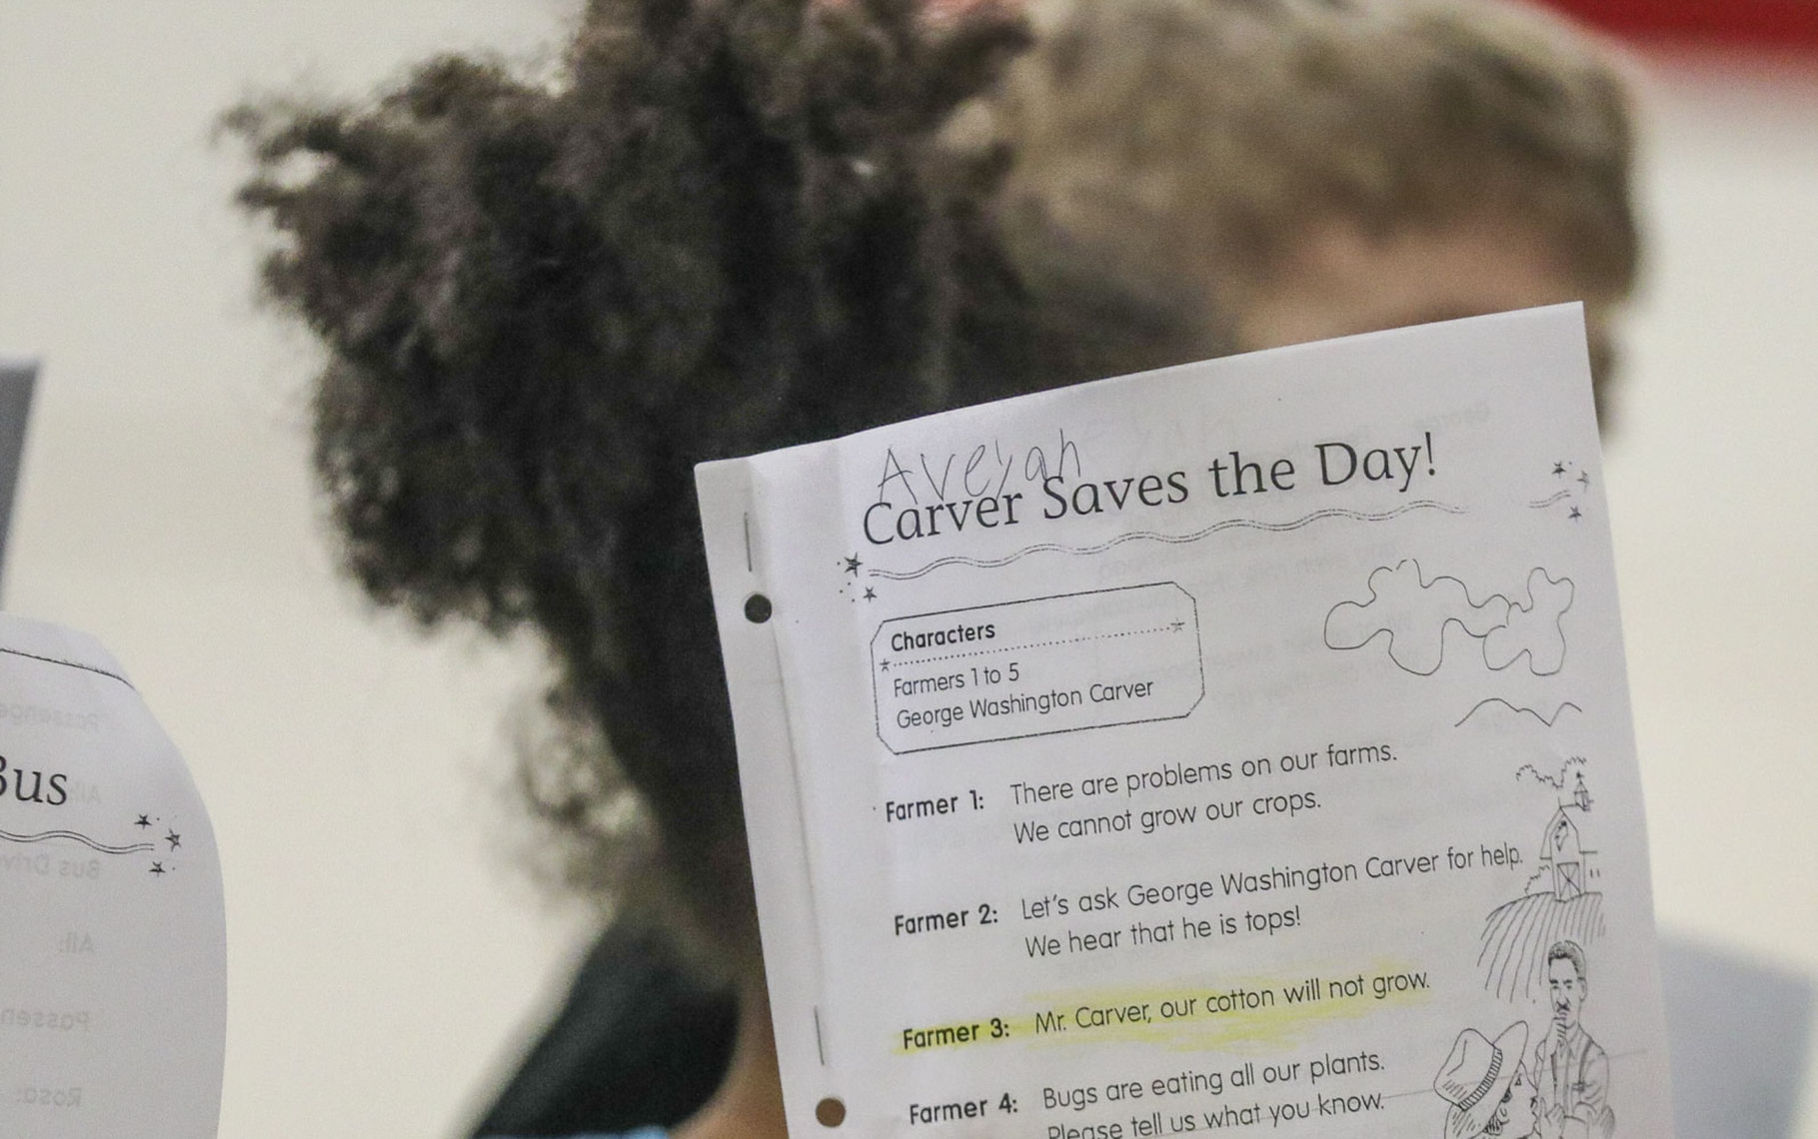 Aveyah
Carver Saves the Day!
Characters
Farmers 1 to 5
George Washington Carver
Farmer 1: There are problems on our farms.
We cannot grow our crops.
Farmer 2: Let's ask George Washington Carver for help.
We hear that he is tops!
Farmer 3: Mr. Carver, our cotton will not grow.
Farmer 4: Bugs are eating all our plants.
Please tell us what you know.
Bus
All:
Rosa: